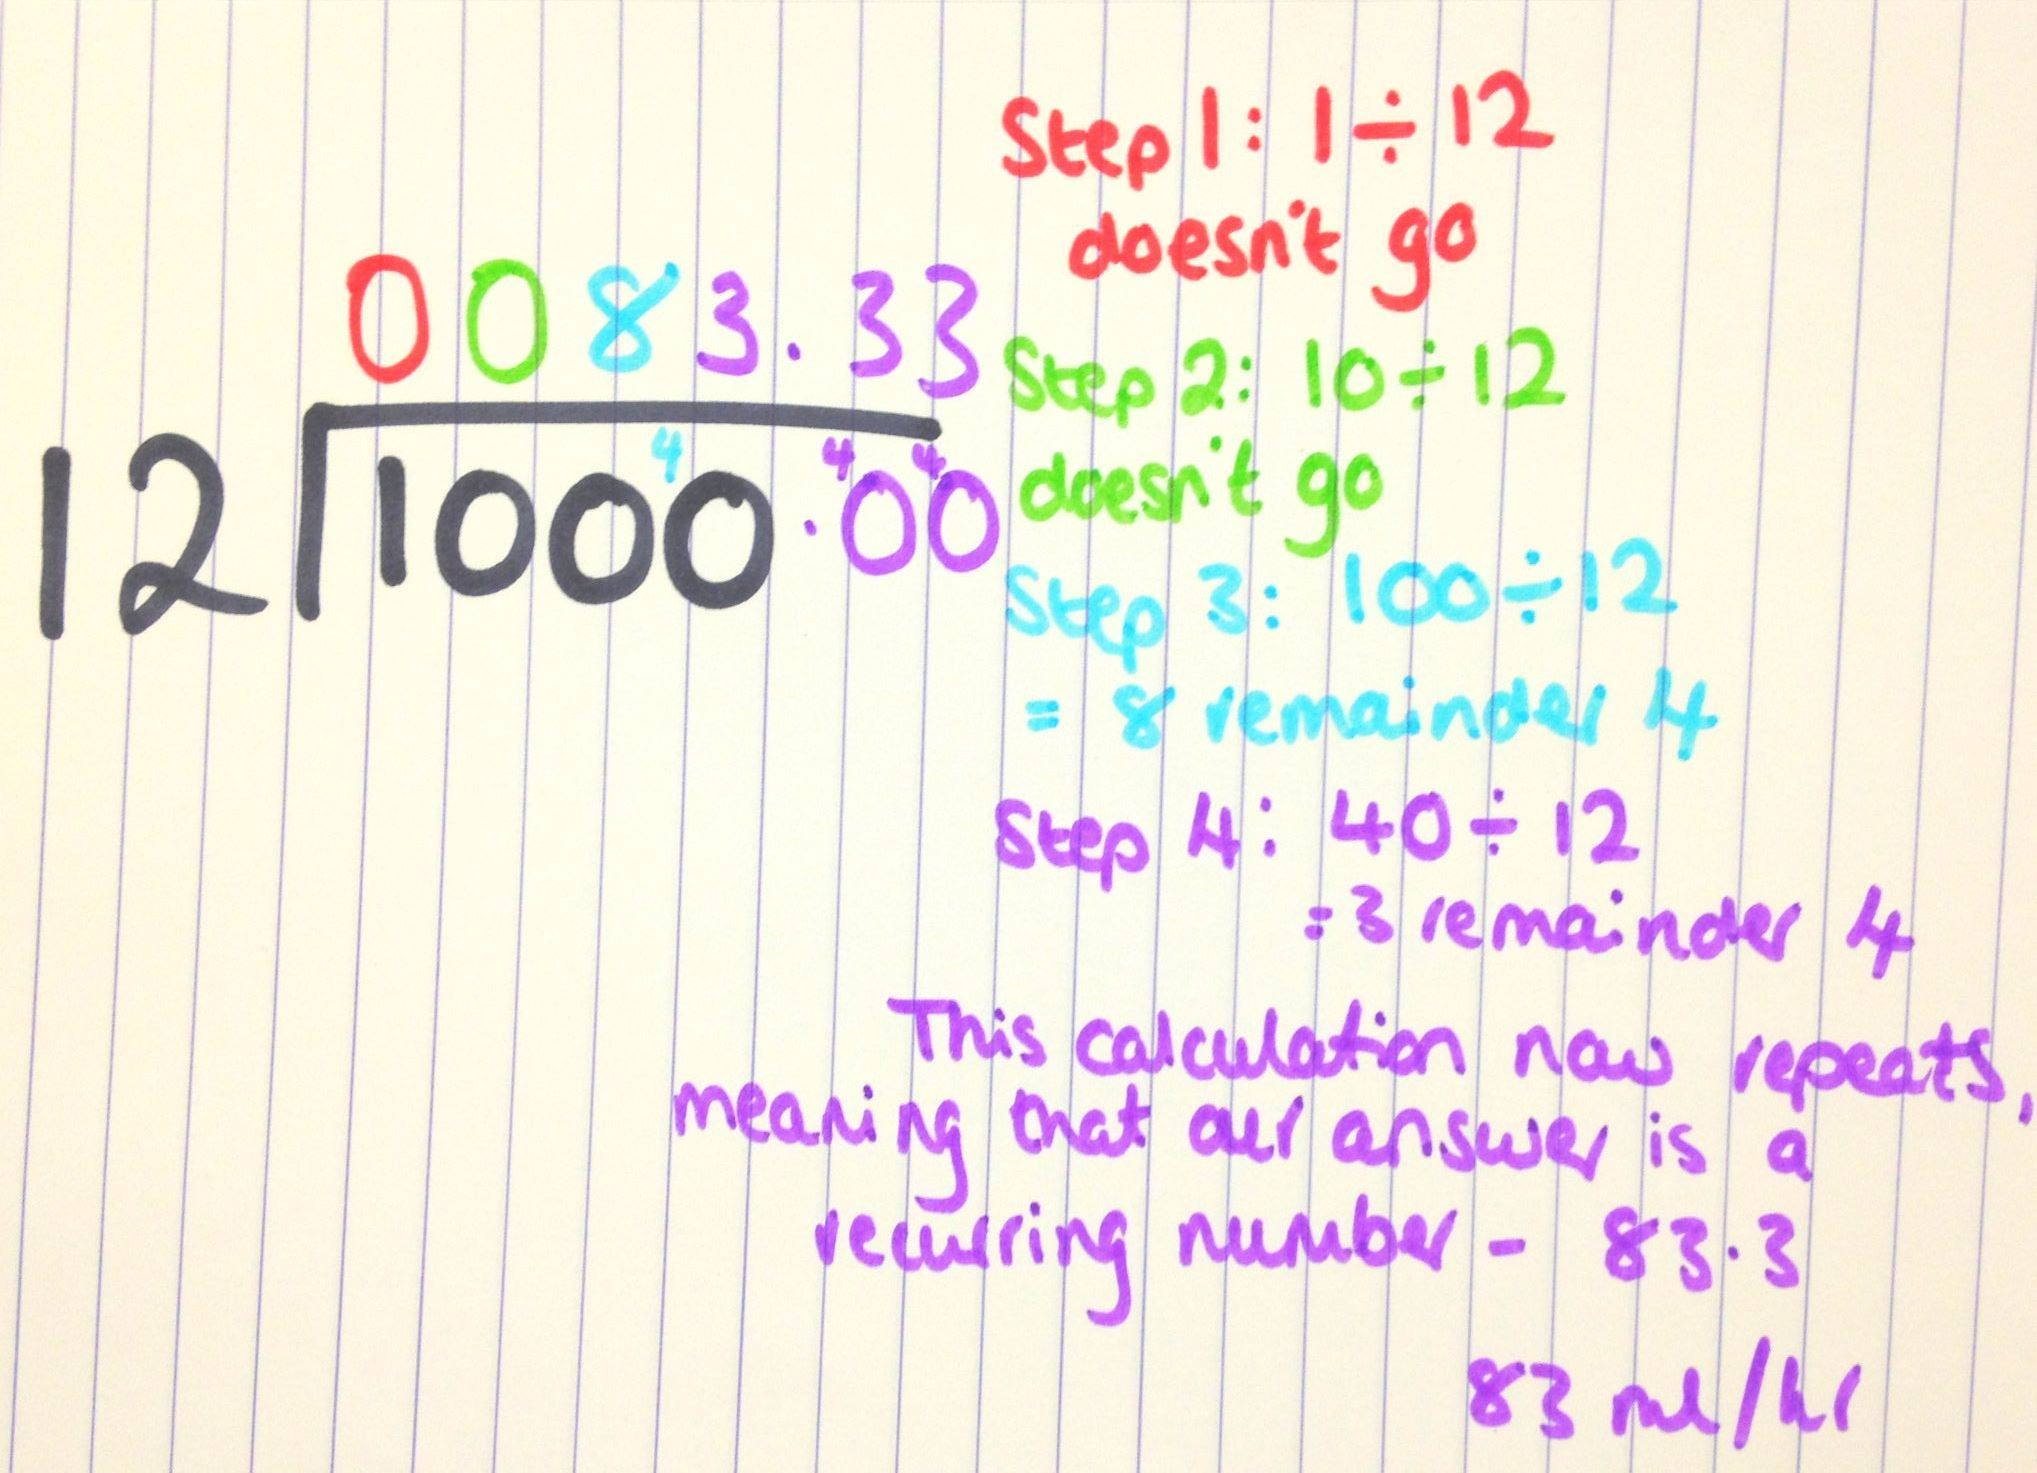 0083.33
12 1000.00
4 4 4
Step 1: 1÷12
doesn't go
Step 2: 10÷12
doesn't go
Step 3: 100÷12
= 8 remainder 4
Step 4: 40÷12
=3 remainder 4
This calculation now repeats,
meaning that our answer is a
recurring number - 83.3
83 ml/hr